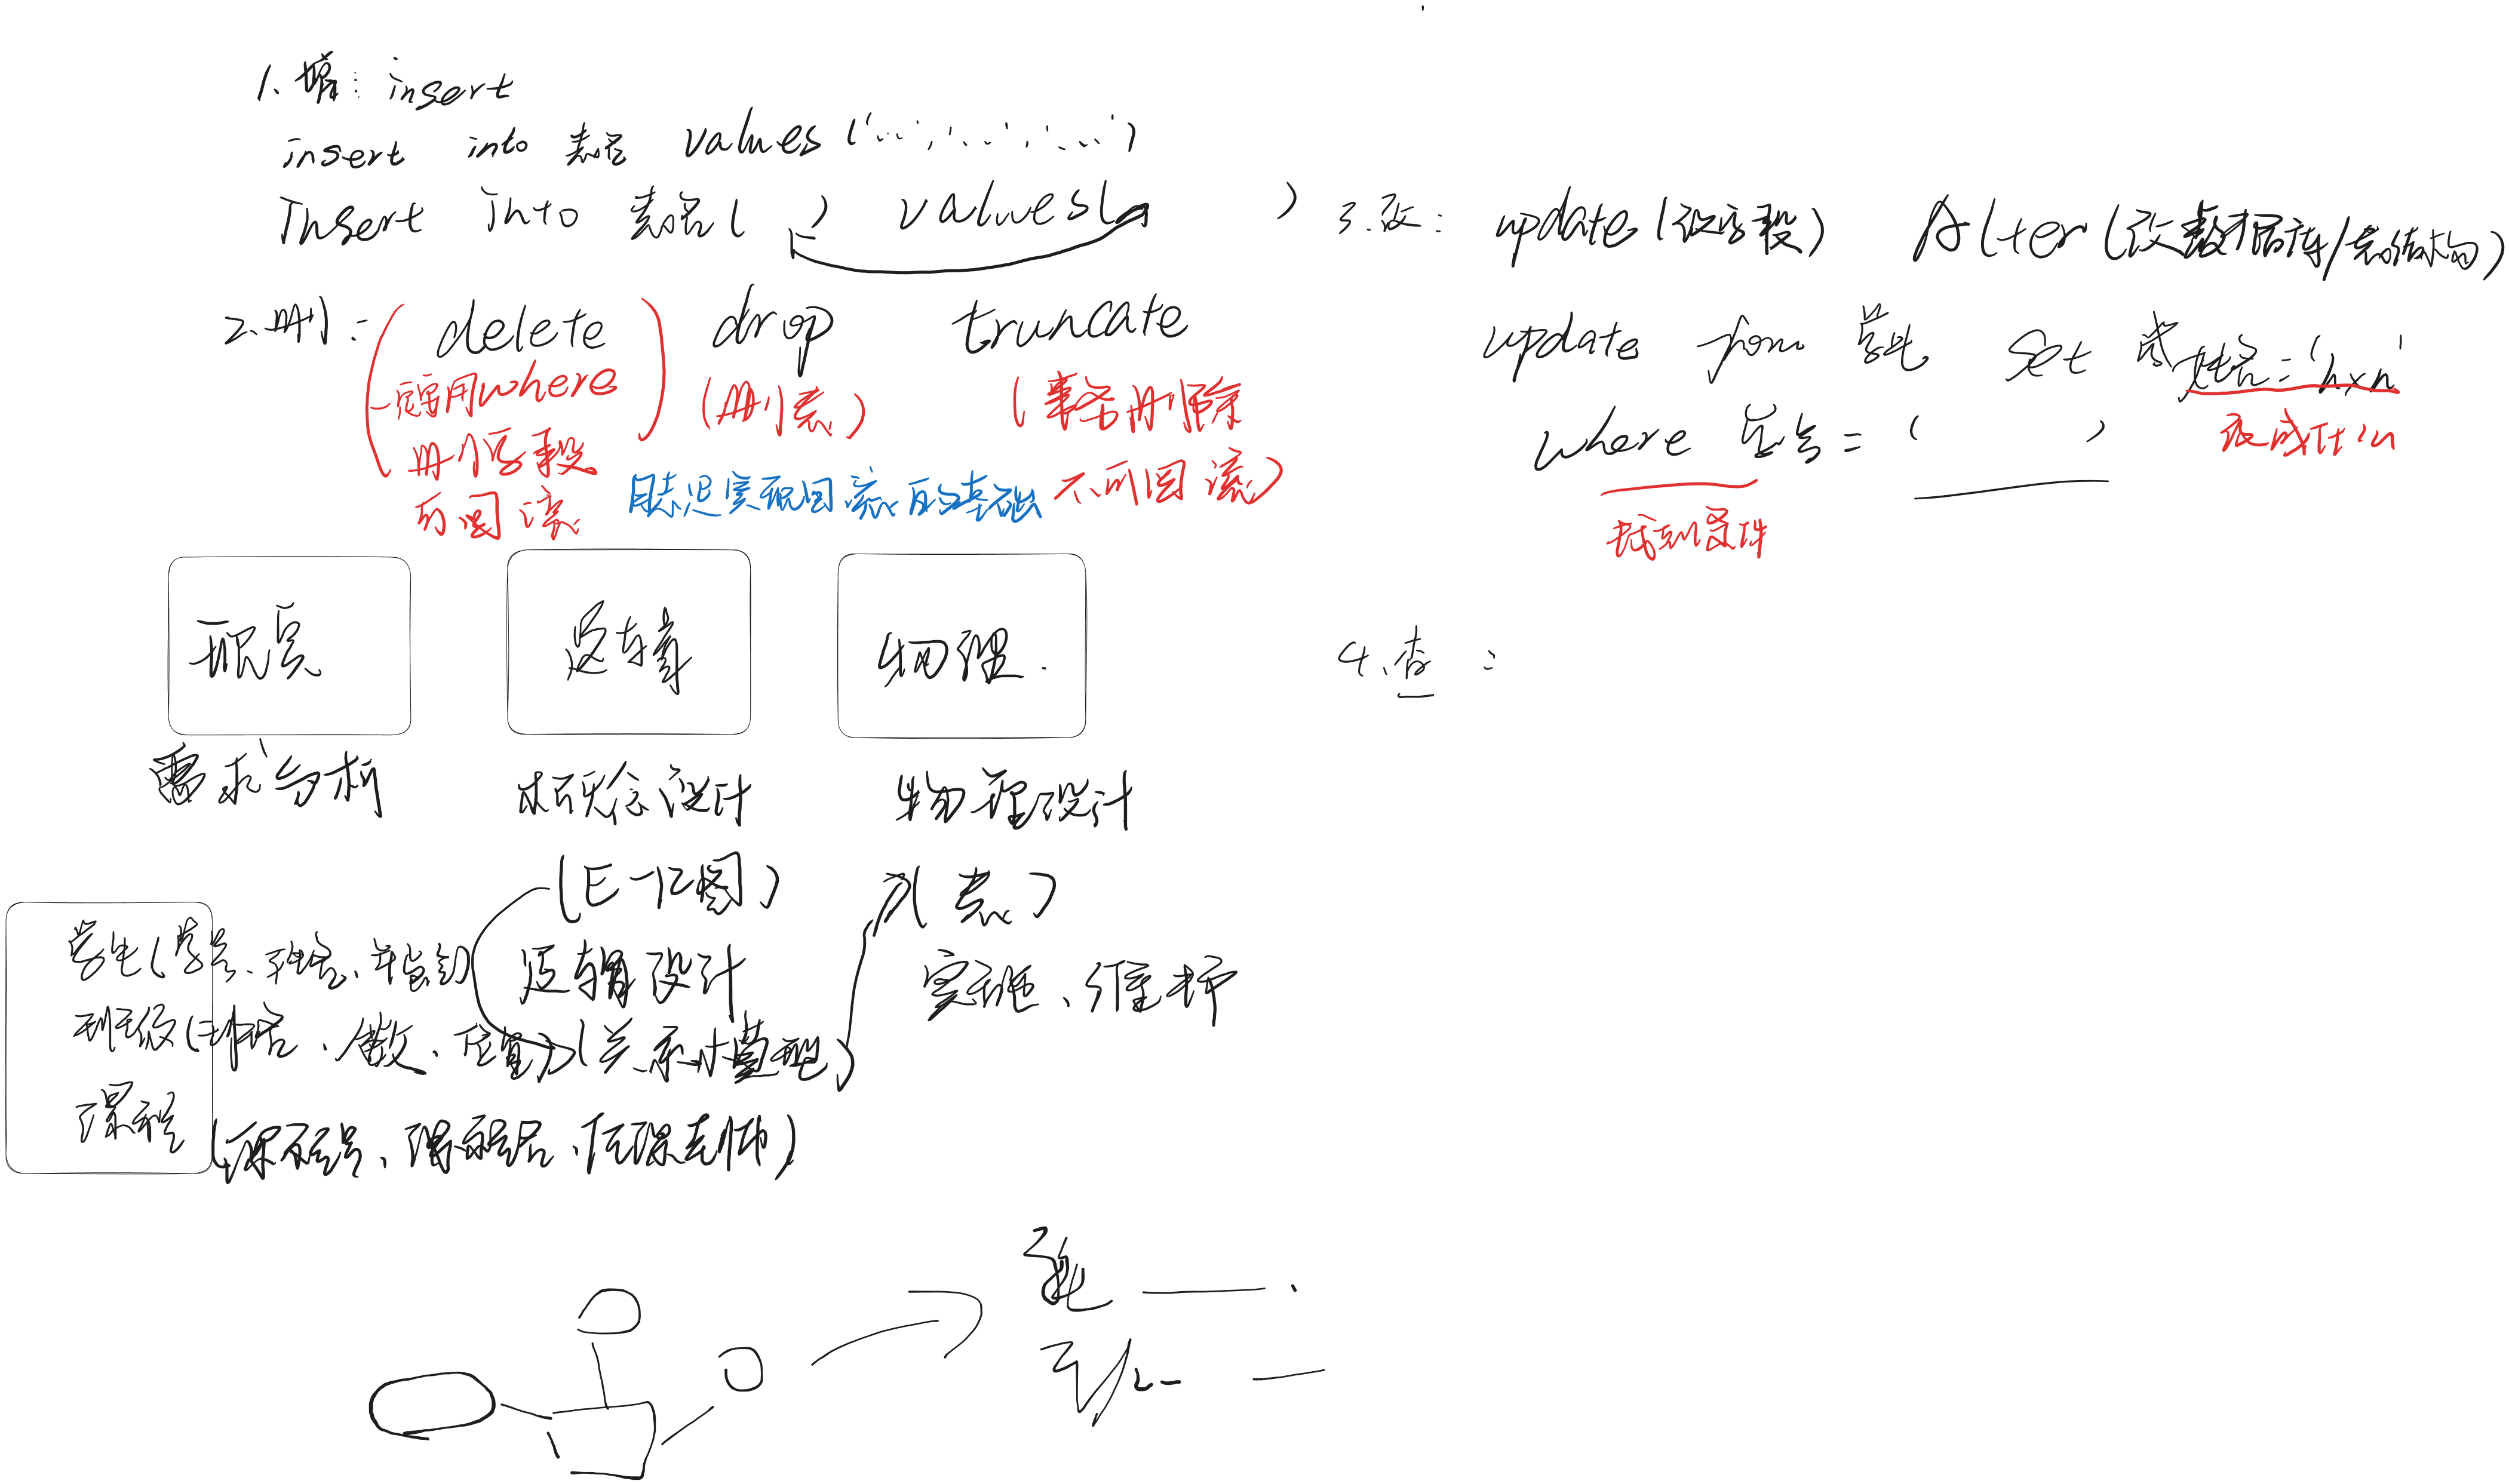 1、增：insert
insert into 表名 values('...','...','...')
Insert into 表名( ) values( )
2、删： delete drop truncate
(一定要用where (删表) (表名删除
删
可回滚 日志是实现回滚的基础 不可回滚)
3.改： update(改字段) Alter(改数据库/表结构)
update from 学生 set 姓名='hxh'
where 学号=' '
改成什么
找到条件
4.查：
现实 逻辑 物理.
需求分析 概念设计 物理设计
(E-R图) (表)
学生(学号、姓名、年龄)
逻辑设计
实施、维护
班级( 、人数、 ) (关系模型)
课程 (课程号、课程名、任课老师)